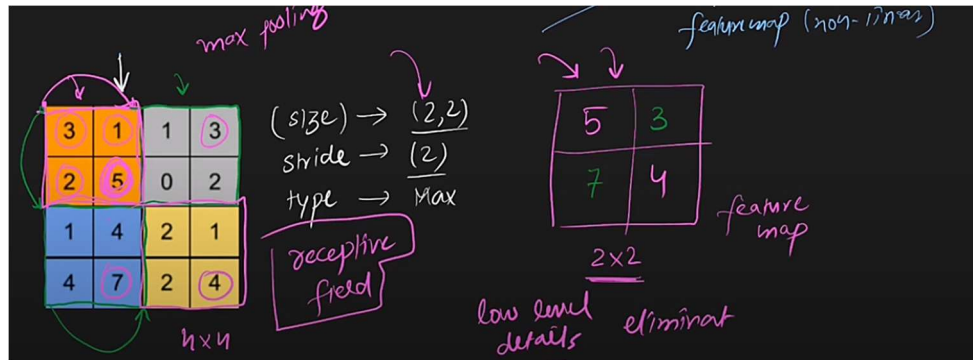 max pooling
feature map (non-linear)
3 1 1 3
2 5 0 2
1 4 2 1
4 7 2 4
4x4
(size) → (2,2)
stride → (2)
type → Max
receptive
field
5 3
7 4
2x2
feature
map
low level
details eliminat